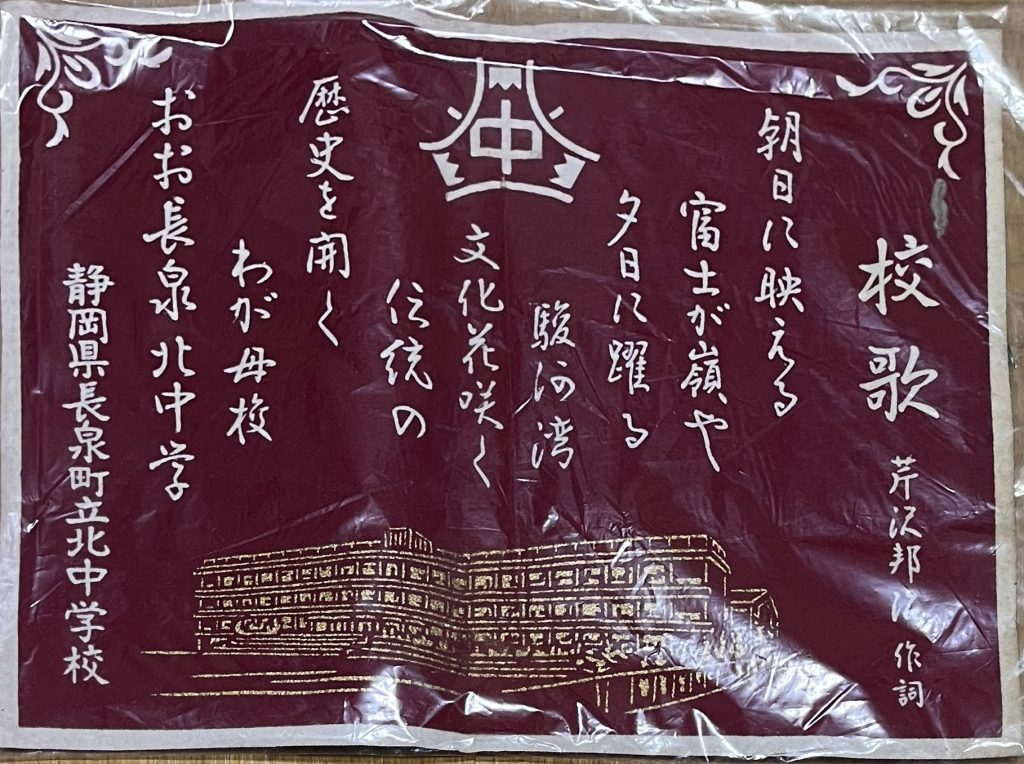 校歌
芹沢邦仁 作詞
朝日に映える
富士が嶺や
夕日に躍る
駿河湾
文化花咲く
伝統の
歴史を開く
わが母校
おお長泉北中学
静岡県長泉町立北中学校
中